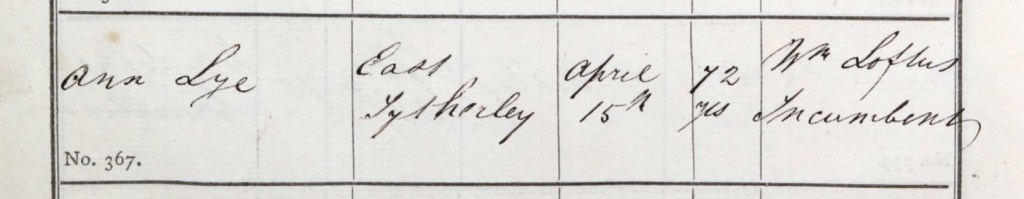 Ann Lye
East
Tytherley
April
15th
72
yrs
Wm Loftus
Incumbent
No. 367.